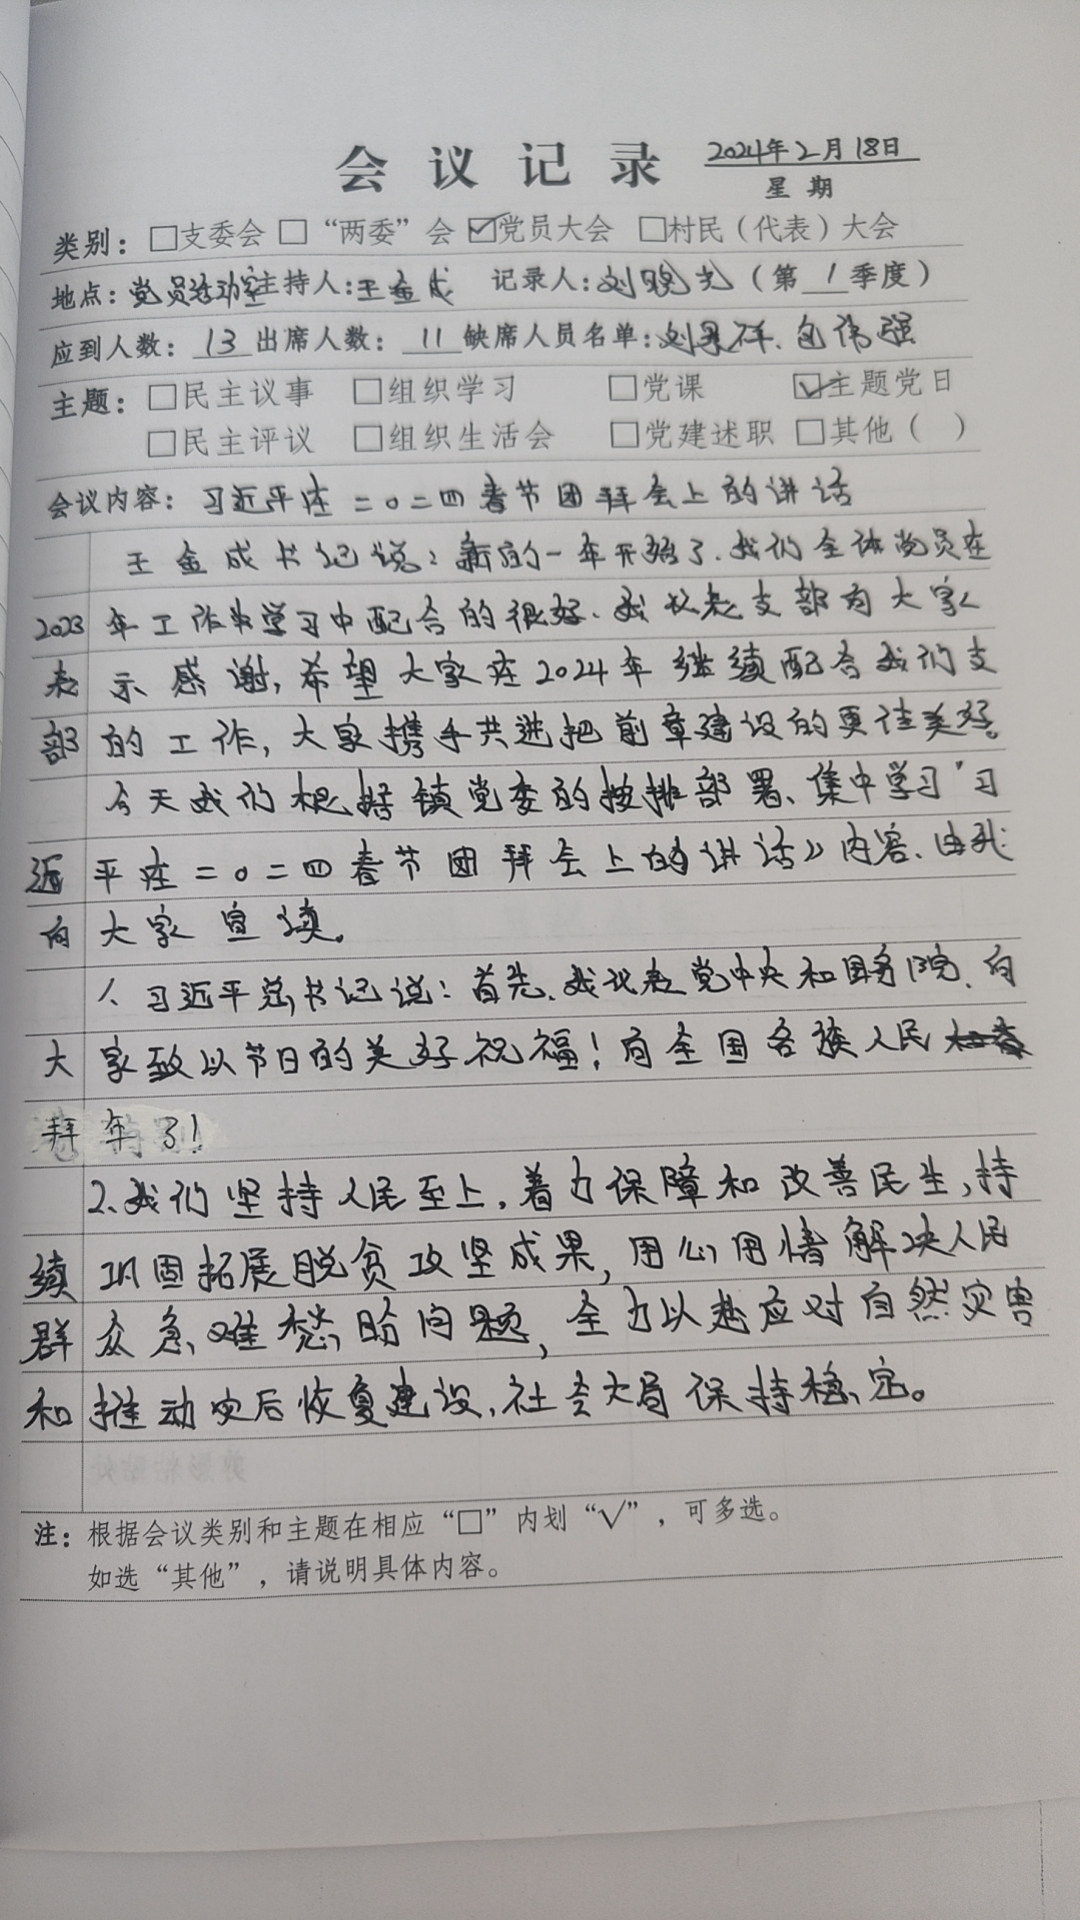 会议记录 2024年2月18日
星期
类别：□支委会 □“两委”会 ☑党员大会 □村民（代表）大会
地点：党员活动室 主持人：王金成 记录人：刘晓光（第1季度）
应到人数：13 出席人数：11 缺席人员名单：刘景祥、包伟强
主题：□民主议事 □组织学习 □党课 ☑主题党日
□民主评议 □组织生活会 □党建述职 □其他（ ）
会议内容：习近平在二0二四春节团拜会上的讲话
王金成书记说：新的一年开始了、我们全体党员在
2023年工作中学习中配合的很好、我代表支部为大家
表示感谢，希望大家在2024年继续配合我们支
部的工作，大家携手共进把前章建设的更佳美好。
今天我们根据镇党委的按排部署、集中学习“习
近平在二0二四春节团拜会上的讲话》内容、由我
向大家宣读。
1、习近平总书记说：首先、我代表党中央和国务院、向
大家致以节日的美好祝福！向全国各族人民
拜年了！
2、我们坚持人民至上，着力保障和改善民生，持
续巩固拓展脱贫攻坚成果，用心用情解决人民
群众急、难愁盼问题，全力以赴应对自然灾害
和推动灾后恢复建设，社会大局保持稳定。
注：根据会议类别和主题在相应“□”内划“√”，可多选。
如选“其他”，请说明具体内容。